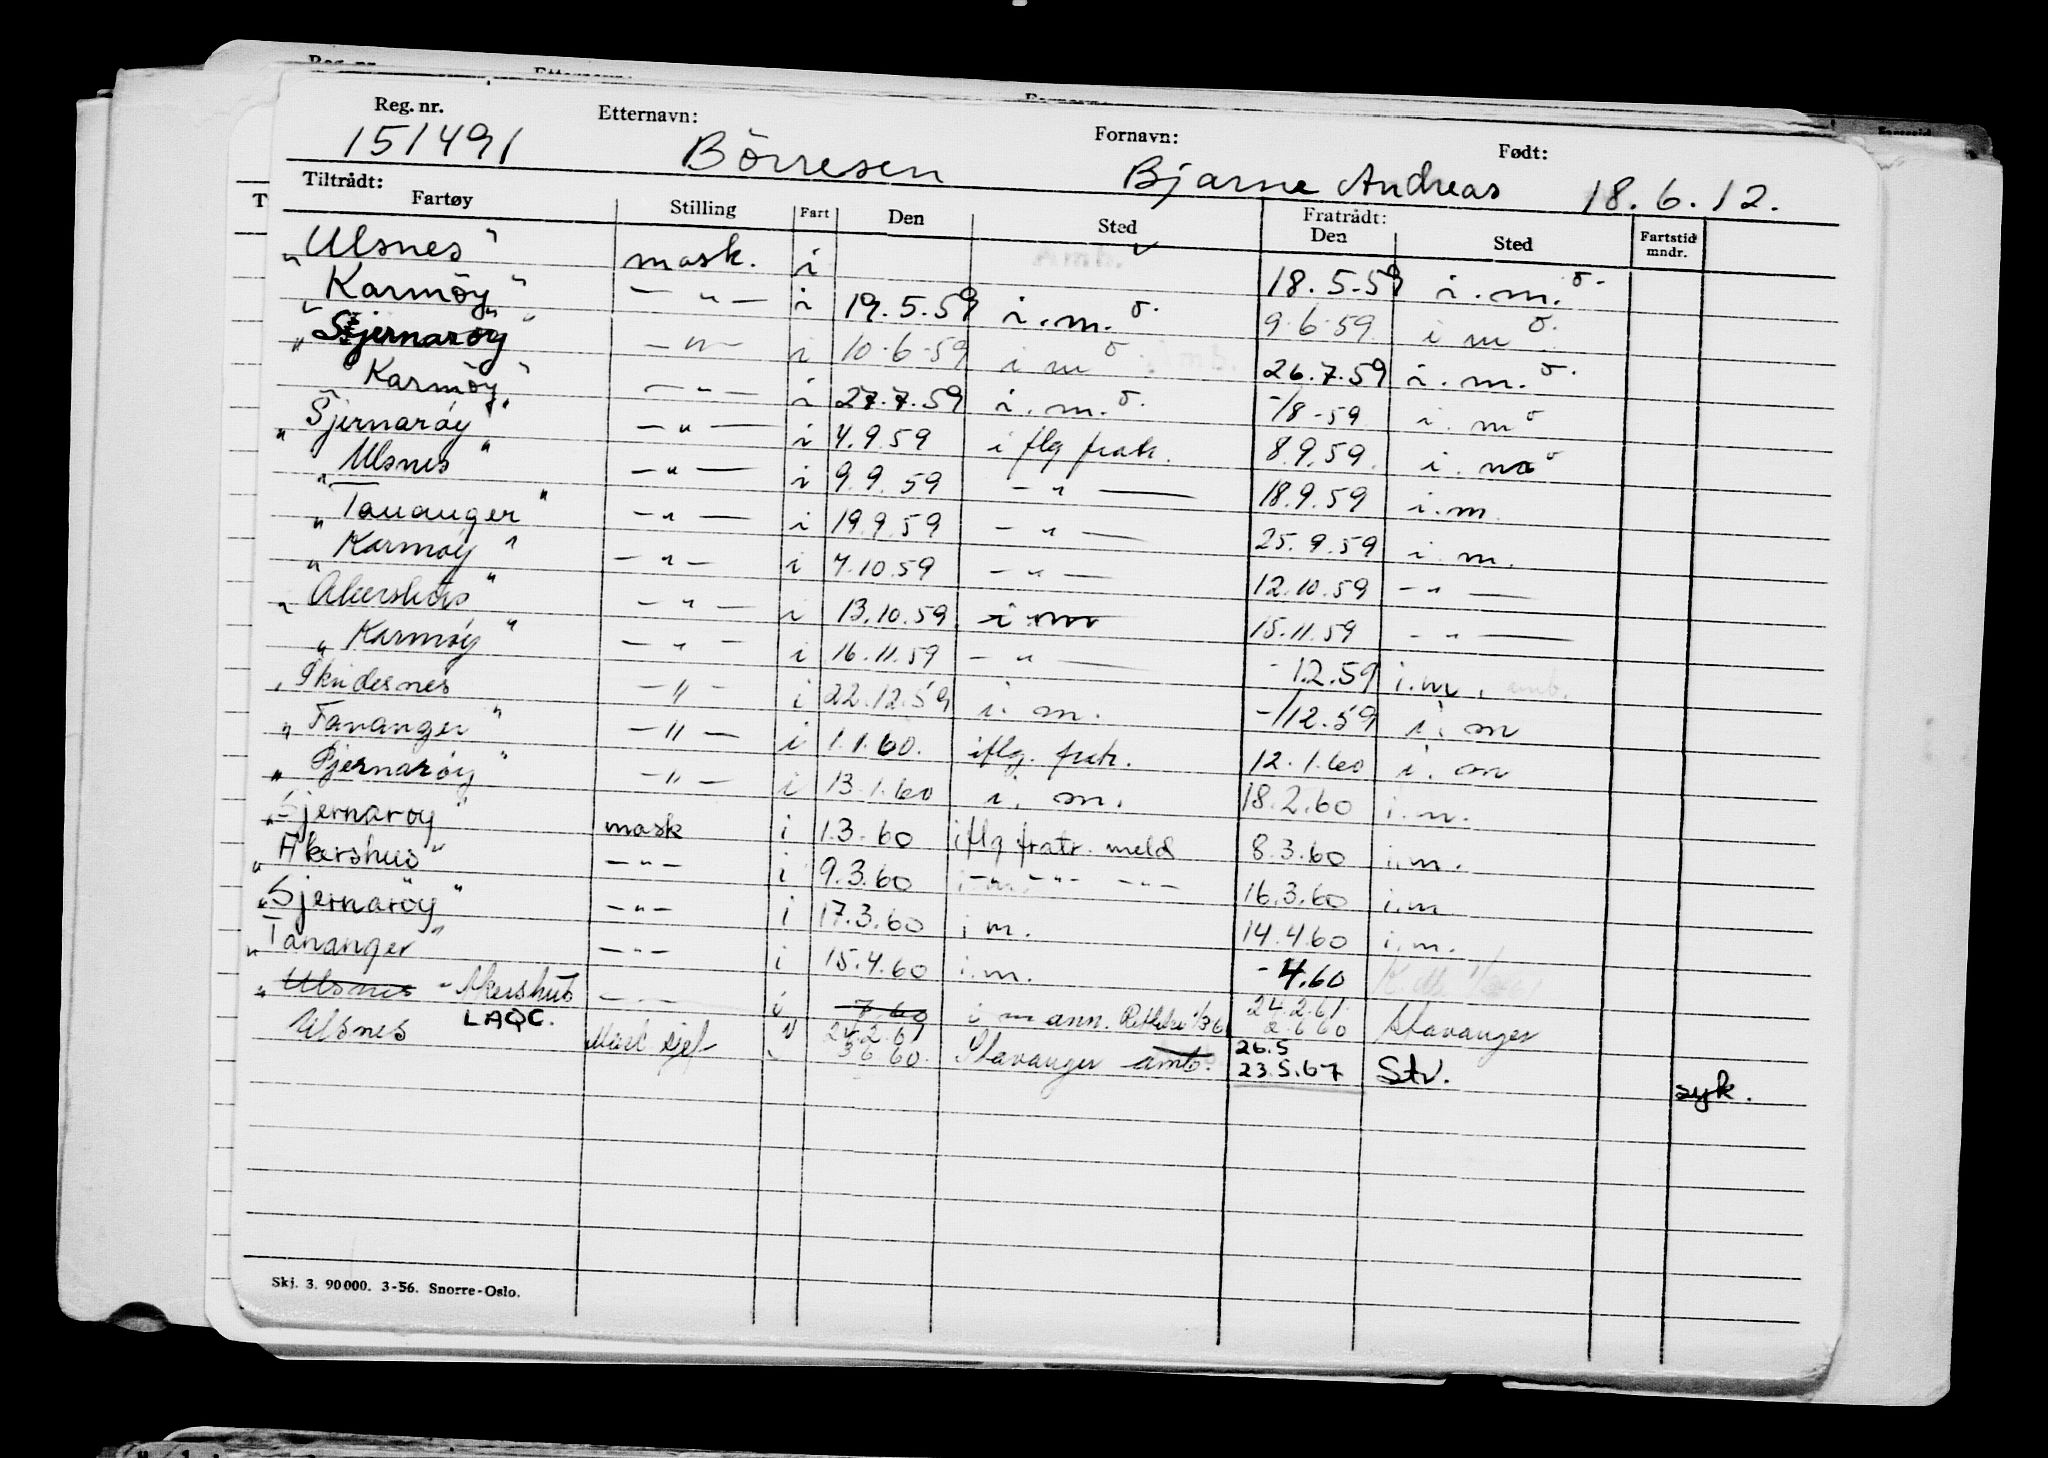 Reg. nr. Etternavn: Fornavn: Født:
151491 Börresen Bjarne Andreas 18.6.12.
Tiltrådt: Fratrådt:
Fartøy Stilling Fart Den Sted Den Sted Fartstid mndr.
"Ulsnes" mask. i 18.5.59 i.m.
"Karmöy" — " — i 19.5.59 i.m. 9.6.59 i m
"Sjernaröy" — " — i 10.6.59 i m 26.7.59 i.m.
"Karmöy" — " — i 27.7.59 i.m. -/8-59 i.m
"Sjernarøy" — " — i 4.9.59 i flg fratr. 8.9.59. i.m
"Ulsnes" — " — i 9.9.59 — " — 18.9.59 i.m
"Tananger" — " — i 19.9.59 — " — 25.9.59 i.m.
"Karmøy" — " — i 4.10.59 — " — 12.10.59 — " —
"Akershus" — " — i 13.10.59 i m 15.11.59 — " —
"Karmøy" — " — i 16.11.59 — " — - 12.59 i.m.
"Skudesnes — " — i 22.12.59 i.m. -/12.59 i.m
"Tananger" — " — i 1.1.60. iflg. fratr. 12.1.60 i.m
"Sjernarøy" — " — i 13.1.60 i.m. 18.2.60 i.m.
"Sjernaroy" mask i 1.3.60 iflg fratr. meld 8.3.60 i.m.
"Akershus" — " — i 9.3.60 — " — — " — 16.3.60 i.m
"Sjernaröy" — " — i 17.3.60 i m. 14.4.60 i.m.
"Tananger" — " — i 15.4.60 i.m. - 4.60
"Ulsnes - Akershus — " — i 7.60 i m ann. 24.2.61
LAQC. 24.2.61 2.6.60 Stavanger
Ulsnes 3 6 60. Stavanger amb. 26.5
23.5.67 Stv. syk.
Skj. 3. 90000. 3-56. Snorre-Oslo.